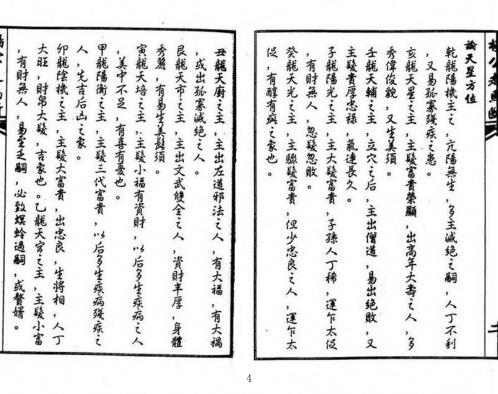 論天星方位
乾龍陽機主之,亢陽無生,多主滅絕之嗣,人丁不利
,又易孤寡殘疾之患。
亥龍天星之主,主發富貴榮顯,出高年大壽之人,多
秀偉俊貌,又生美須。
壬龍天輔之主,立穴之后,主出僧道,易出絕敗,又
主發貴厚忠祿,氣連長久。
子龍陽光之主,主大發富貴,子孫人丁稀,運乍太促
,有財無人,忽發忽敗。
癸龍天光之主,主驟發富貴,但少忠良之人,運乍太
促,有醇有疵之家也。
丑龍天廚之主,主出左道邪法之人,有大福,有大禍
,或出孤寡滅絕之人。
艮龍天市之主,主出文武雙全之人,資財丰厚,身體
秀麗,有易生美髮須。
寅龍天培之主,主發小福有資財,以后多生疾病之人
,美中不足,有喜有憂也。
甲龍陽衡之主,主發三代富貴,以后多生疾病殘疾之
人,先吉后凶之家。
卯龍陰機之主,主發大富貴,出忠良,生將相,人丁
大旺,財帛大發,吉家也。乙龍天官之主,主發小富
,有財無人,易至乏嗣,必致螟蛉過嗣,或贅婿。
4